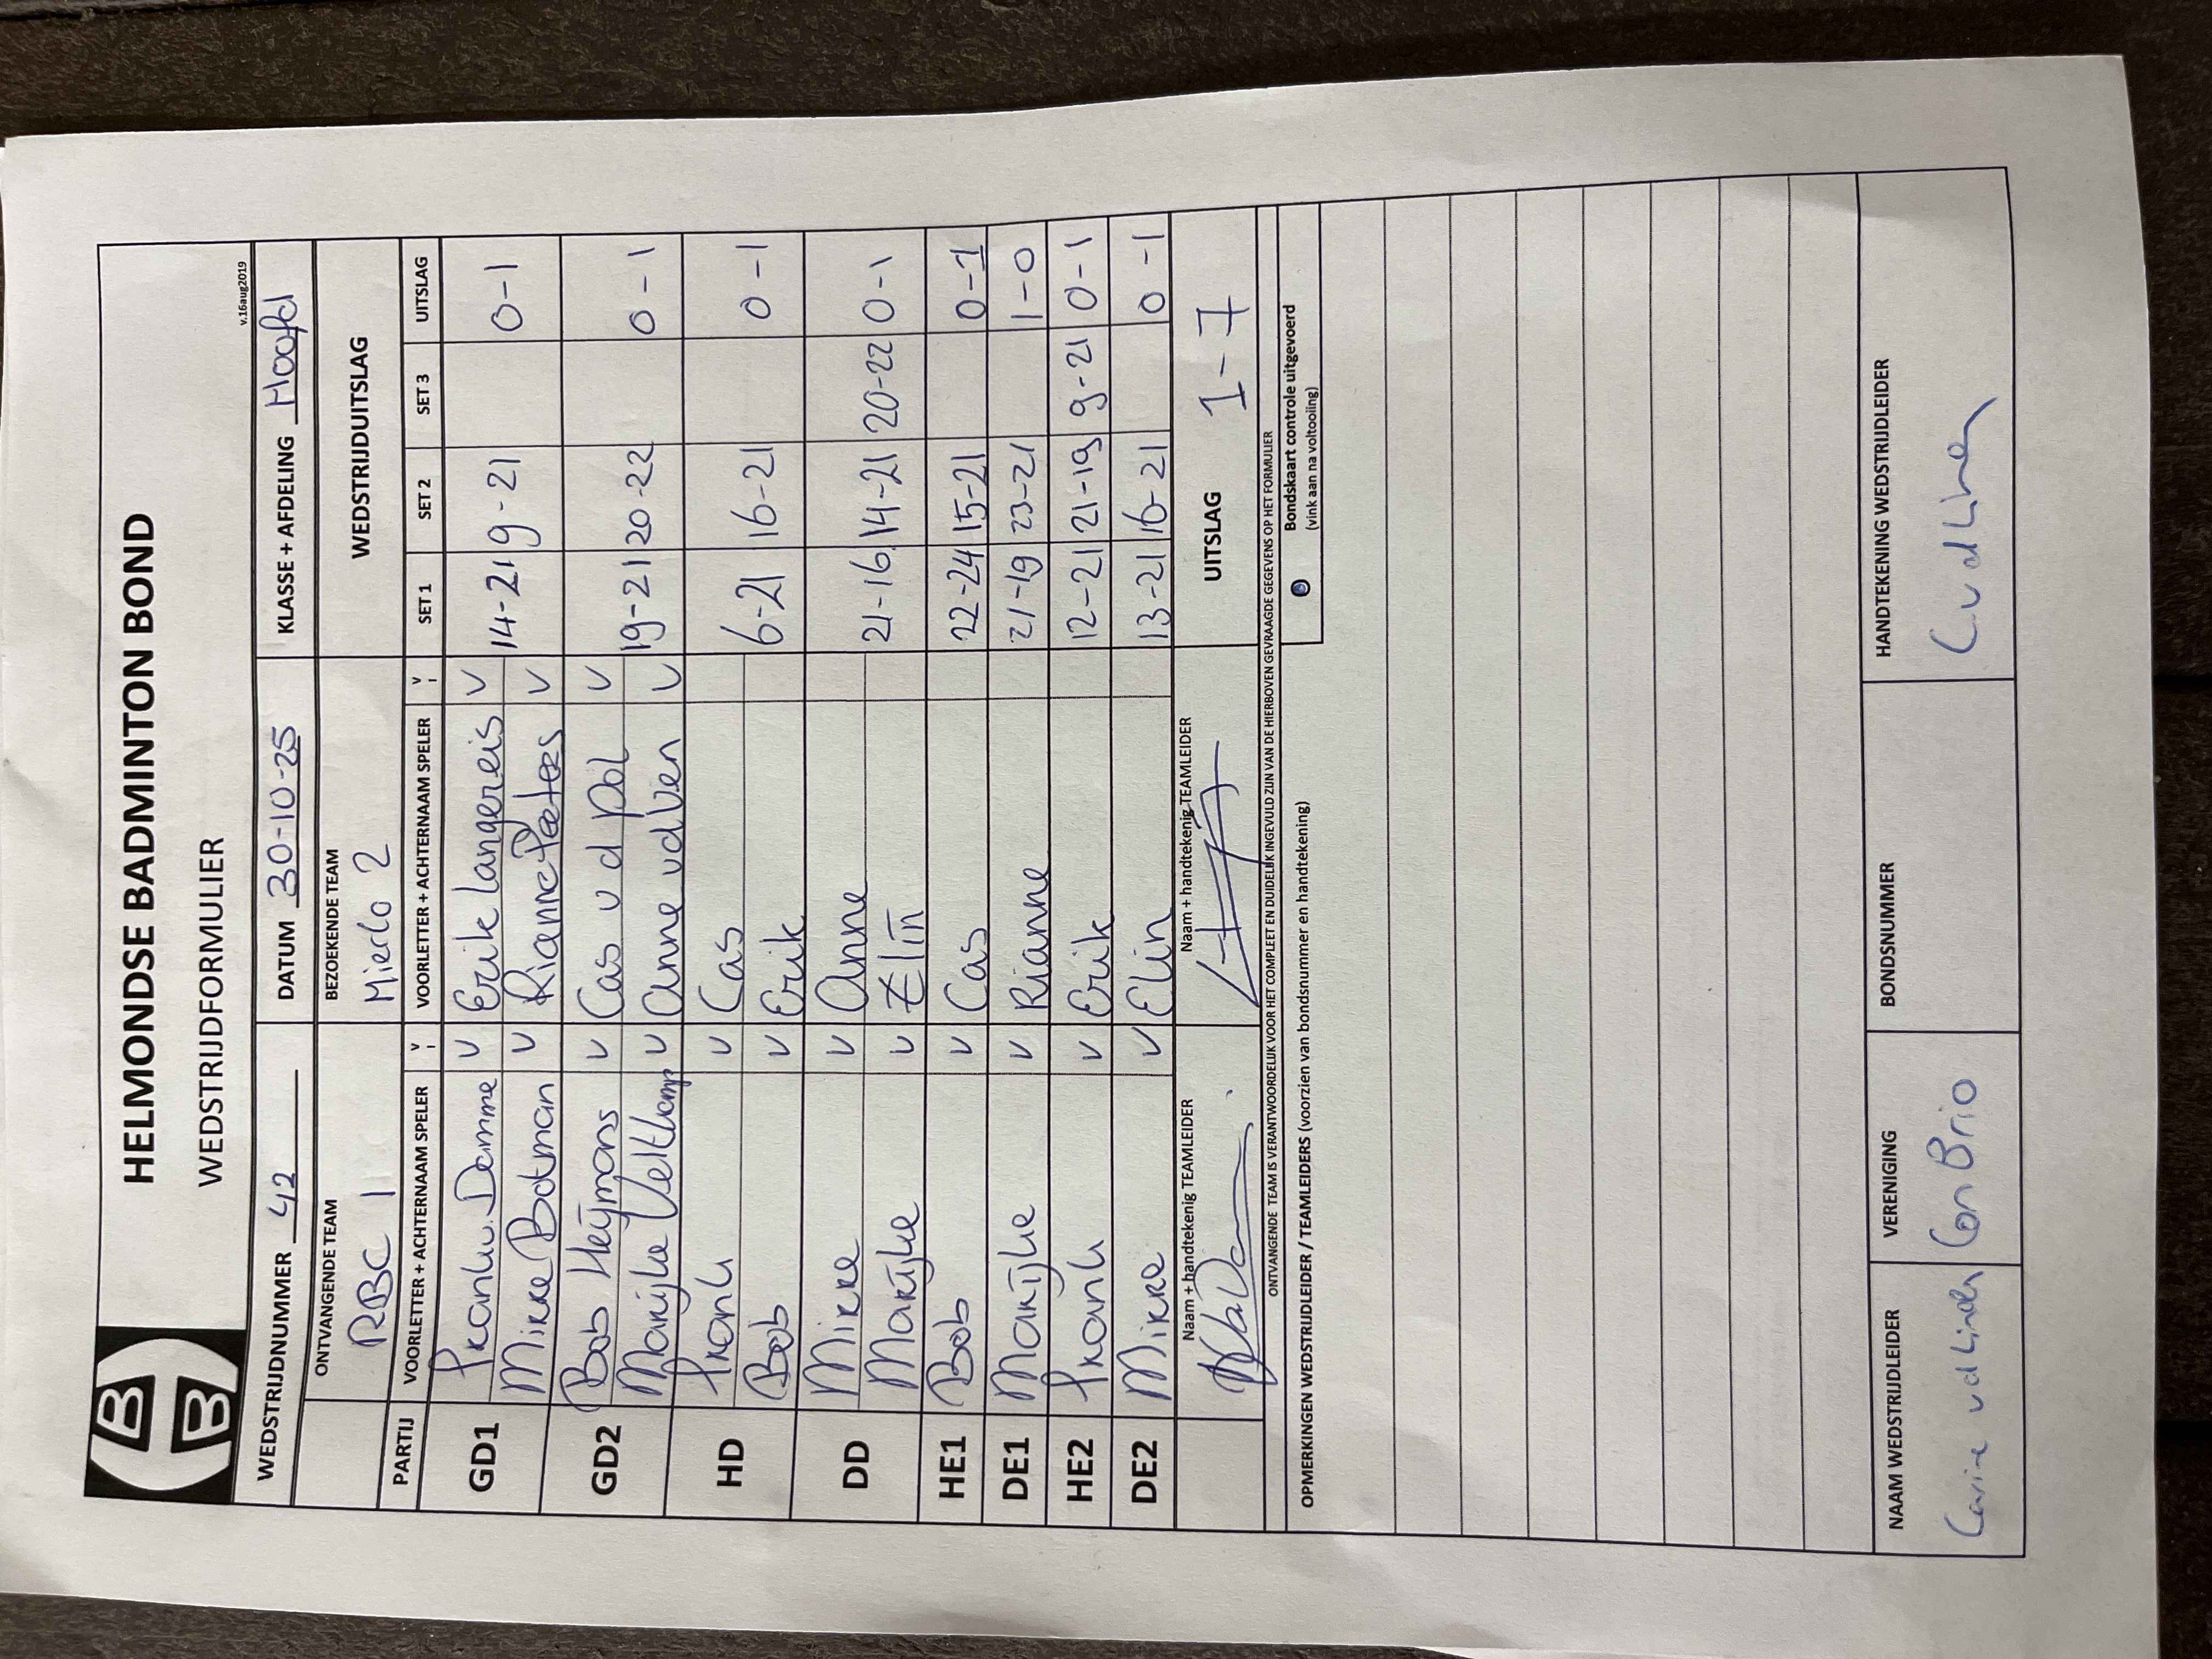 HELMONDSE BADMINTON BOND
WEDSTRIJDFORMULIER
v.16aug2019
WEDSTRIJDNUMMER 42 DATUM 30-10-25 KLASSE + AFDELING Hoofd
ONTVANGENDE TEAM BEZOEKENDE TEAM WEDSTRIJDUITSLAG
RBC 1 Mierlo 2
PARTIJ VOORLETTER + ACHTERNAAM SPELER V VOORLETTER + ACHTERNAAM SPELER V SET 1 SET 2 SET 3 UITSLAG
GD1 Frank v. Damme v Erik Langereis v 14-21 9-21 0-1
Mirre Botman v Rianne Peeters v
GD2 Bob Heijmans v Cas v d pol v 19-21 20-22 0-1
Marijke Veltkamp v Anne vd Ven v
HD Frank v Cas 6-21 16-21 0-1
Bob v Erik
DD Mirre v Anne 21-16 14-21 20-22 0-1
Marijke v Elin
HE1 Bob v Cas 22-24 15-21 0-1
DE1 Marijke v Rianne 21-19 23-21 1-0
HE2 Frank v Erik 12-21 21-19 9-21 0-1
DE2 Mirre v Elin 13-21 16-21 0-1
Naam + handtekenig TEAMLEIDER Naam + handtekenig TEAMLEIDER UITSLAG 1-7
ONTVANGENDE TEAM IS VERANTWOORDELIJK VOOR HET COMPLEET EN DUIDELIJK INGEVULD ZIJN VAN DE HIERBOVEN GEVRAAGDE GEGEVENS OP HET FORMULIER
OPMERKINGEN WEDSTRIJDLEIDER / TEAMLEIDERS (voorzien van bondsnummer en handtekening) Bondskaart controle uitgevoerd
(vink aan na voltooling)
NAAM WEDSTRIJDLEIDER VERENIGING BONDSNUMMER HANDTEKENING WEDSTRIJDLEIDER
Carine vd Linden Con Brio C vd Linden